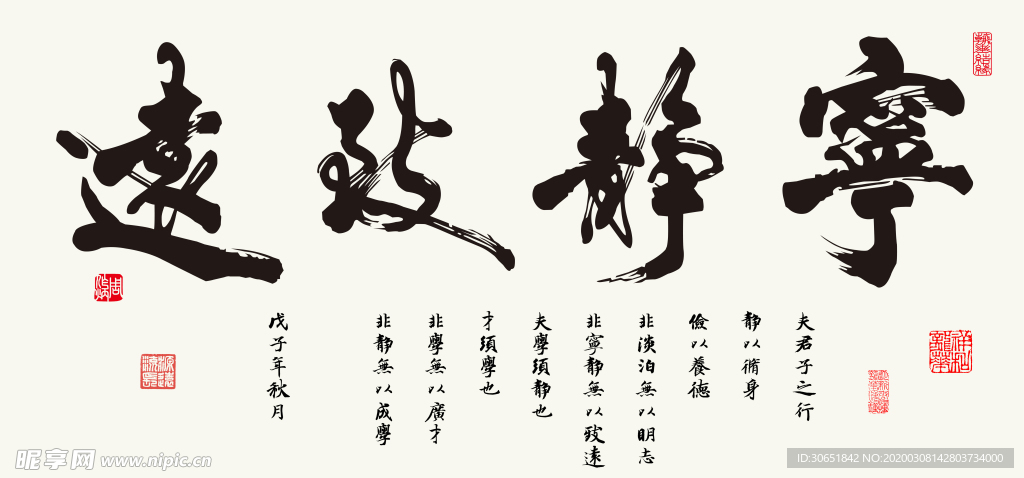 寧靜致遠
夫君子之行
靜以脩身
儉以養德
非淡泊無以明志
非寧靜無以致遠
夫學須靜也
才須學也
非學無以廣才
非靜無以成學
戊子年秋月
昵享网 www.nipic.cn
ID:30651842 NO:20200308142803734000